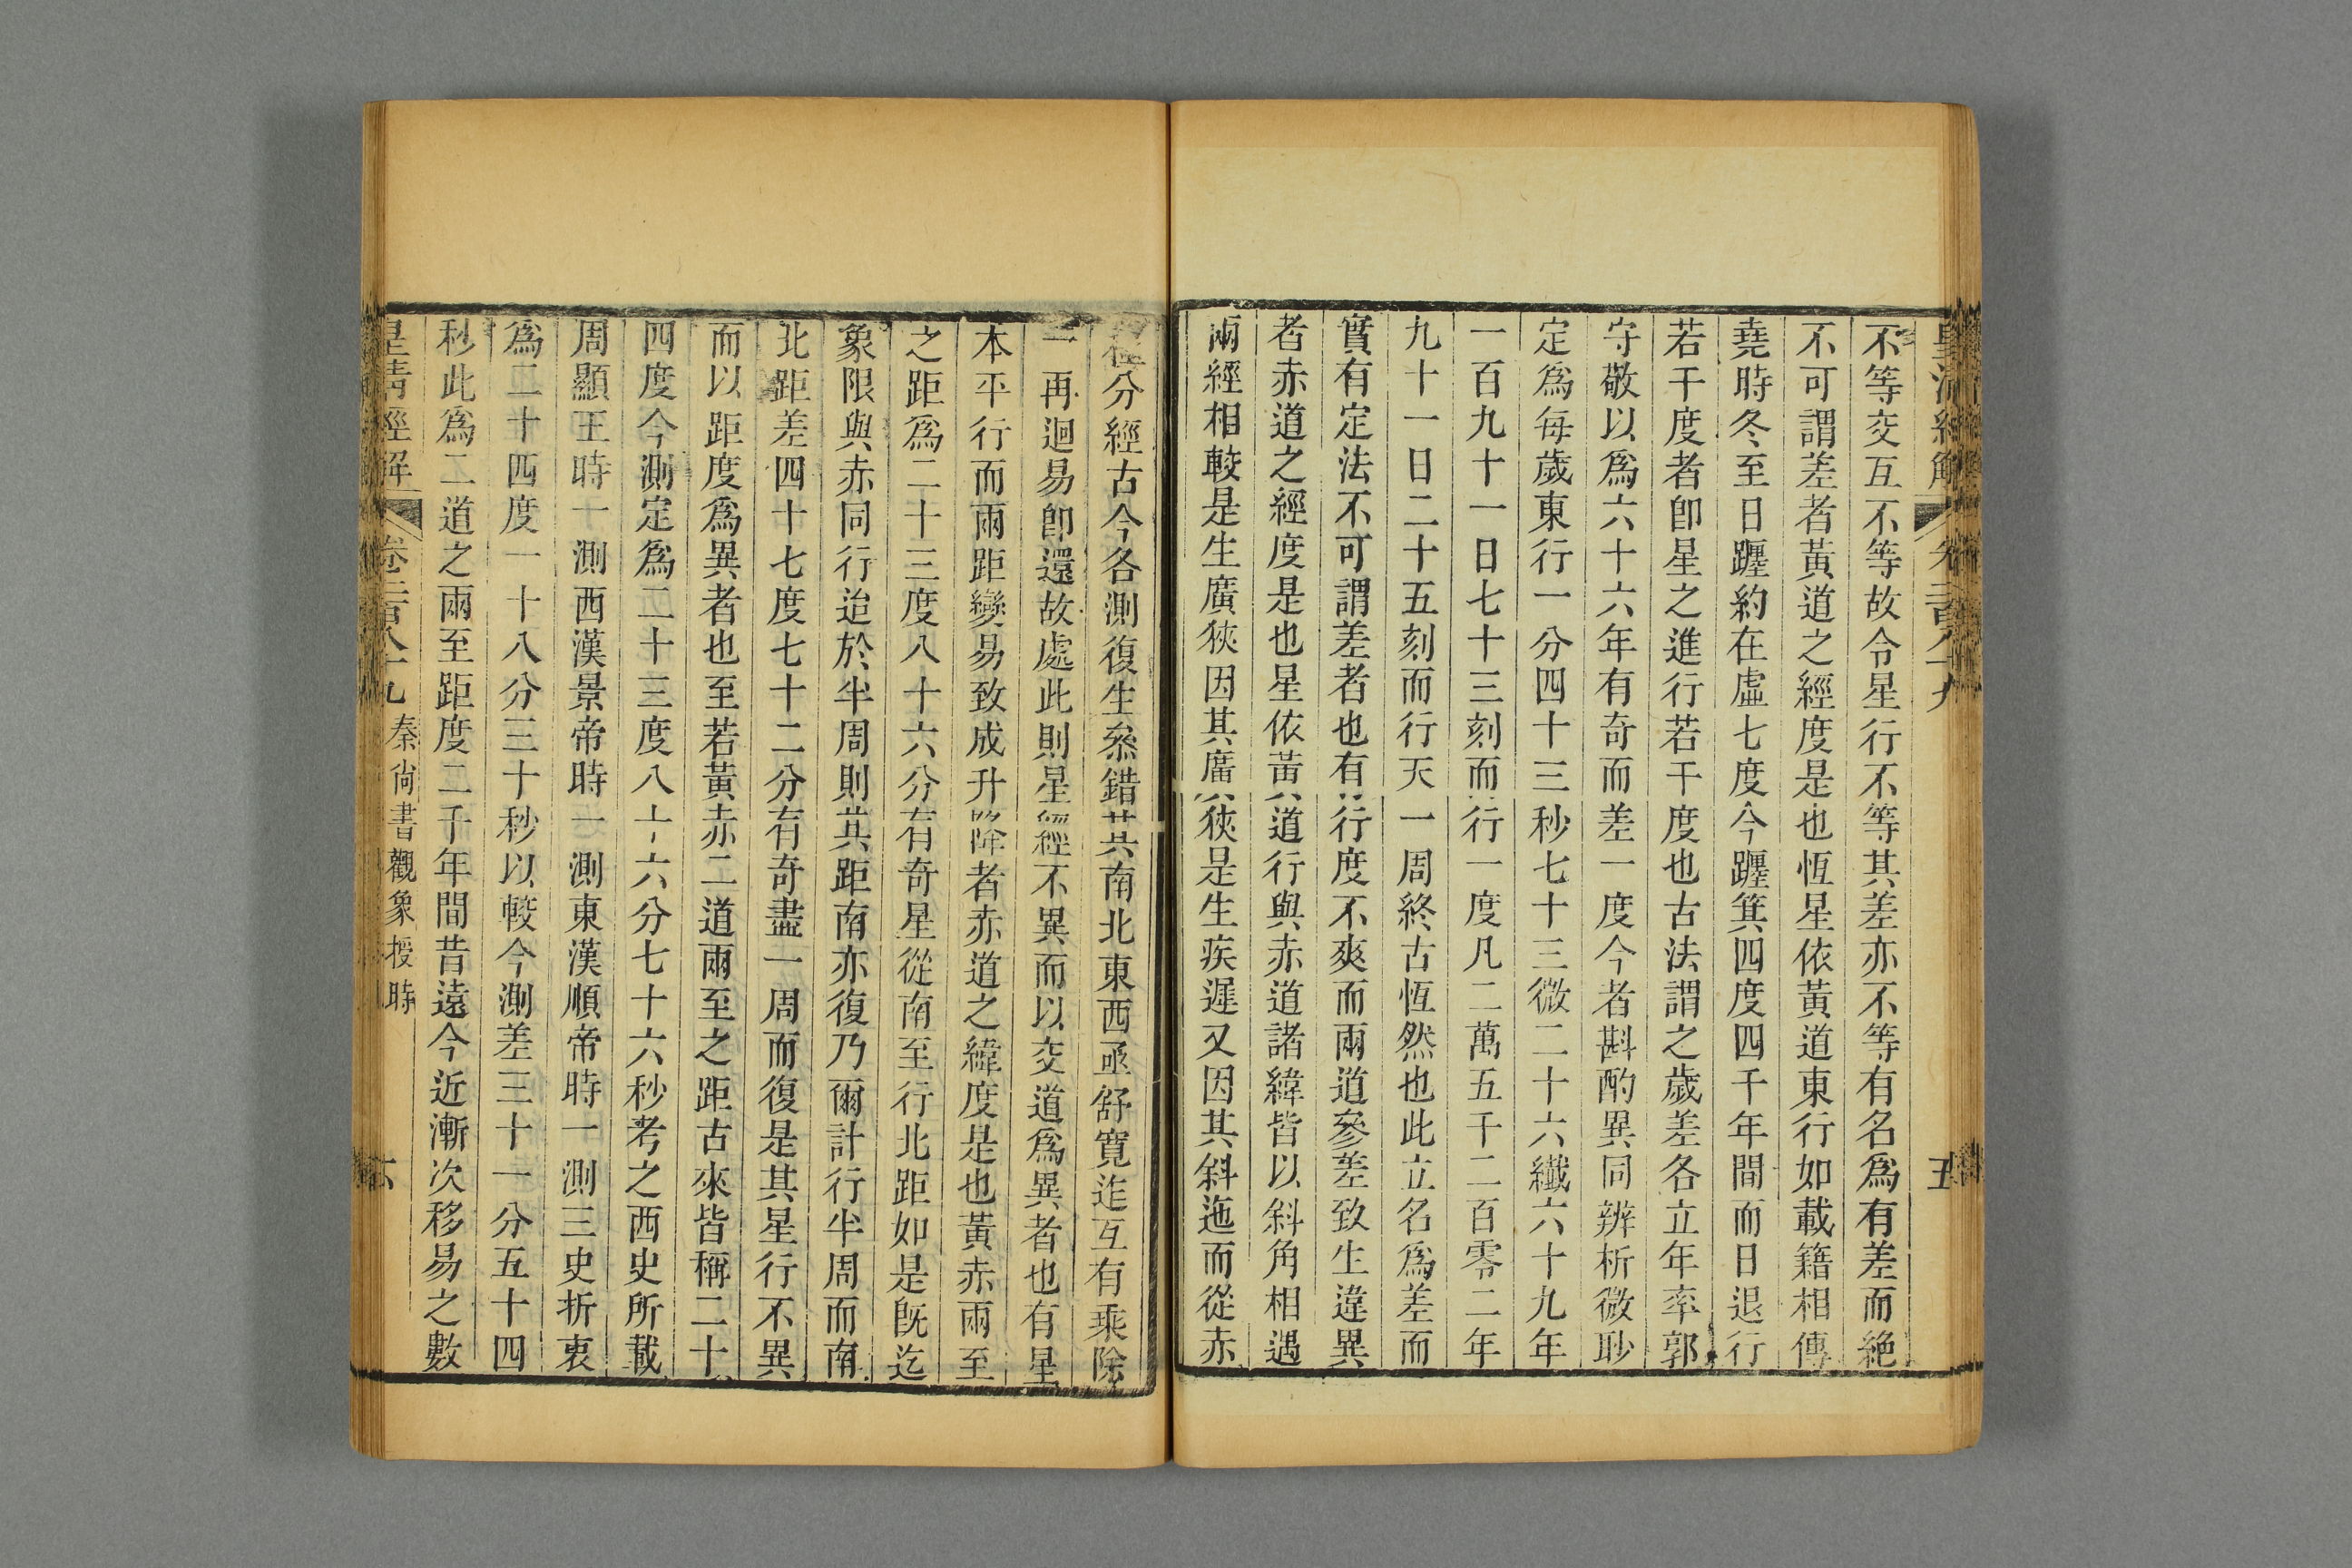 皇清經解 卷二百八十九 五
不等交互不等故令星行不等其差亦不等有名爲有差而絶
不可謂差者黃道之經度是也恆星依黃道東行如載籍相傳
堯時冬至日躔約在虛七度今躔箕四度四千年間而日退行
若干度者卽星之進行若干度也古法謂之歲差各立年率郭
守敬以爲六十六年有奇而差一度今者斟酌異同辨析微眇
定爲每歲東行一分四十三秒七十三微二十六纖六十九年
一百九十一日七十三刻而行一度凡二萬五千二百零二年
九十一日二十五刻而行天一周終古恆然也此立名爲差而
實有定法不可謂差者也有行度不爽而兩道參差致生違異
者赤道之經度是也星依黃道行與赤道諸緯皆以斜角相遇
兩經相較是生廣狹因其廣狹是生疾遲又因其斜迤而從赤
極分經古今各測復生叅錯其南北東西亟舒寬迮互有乘除
一再迴易卽還故處此則星經不異而以交道爲異者也有星
本平行而兩距變易致成升降者赤道之緯度是也黃赤兩至
之距爲二十三度八十六分有奇星從南至行北距如是旣迄
象限與赤同行迨於半周則其距南亦復乃爾計行半周而南
北距差四十七度七十二分有奇盡一周而復是其星行不異
而以距度爲異者也至若黃赤二道兩至之距古來皆稱二十
四度今測定爲二十三度八十六分七十六秒考之西史所載
周顯王時一測西漢景帝時一測東漢順帝時一測三史折衷
爲二十四度一十八分三十秒以較今測差三十一分五十四
秒此爲二道之兩至距度二千年間昔遠今近漸次移易之數
皇清經解 卷二百八十九 秦尙書觀象授時 六